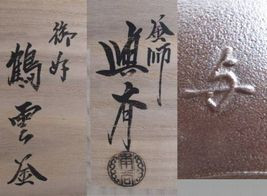 御好
鶴雲釜
釜師
與斉
与